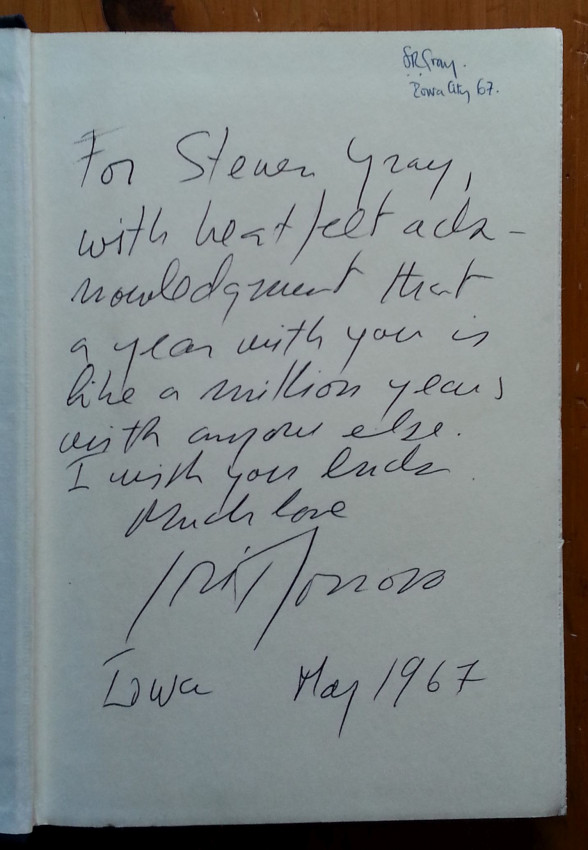 SR Gray.
Iowa City 67.
For Steven Gray,
with heartfelt ack-
nowledgment that
a year with you is
like a million years
with anyone else.
I wish you luck
Much love
José Donoso
Iowa May 1967